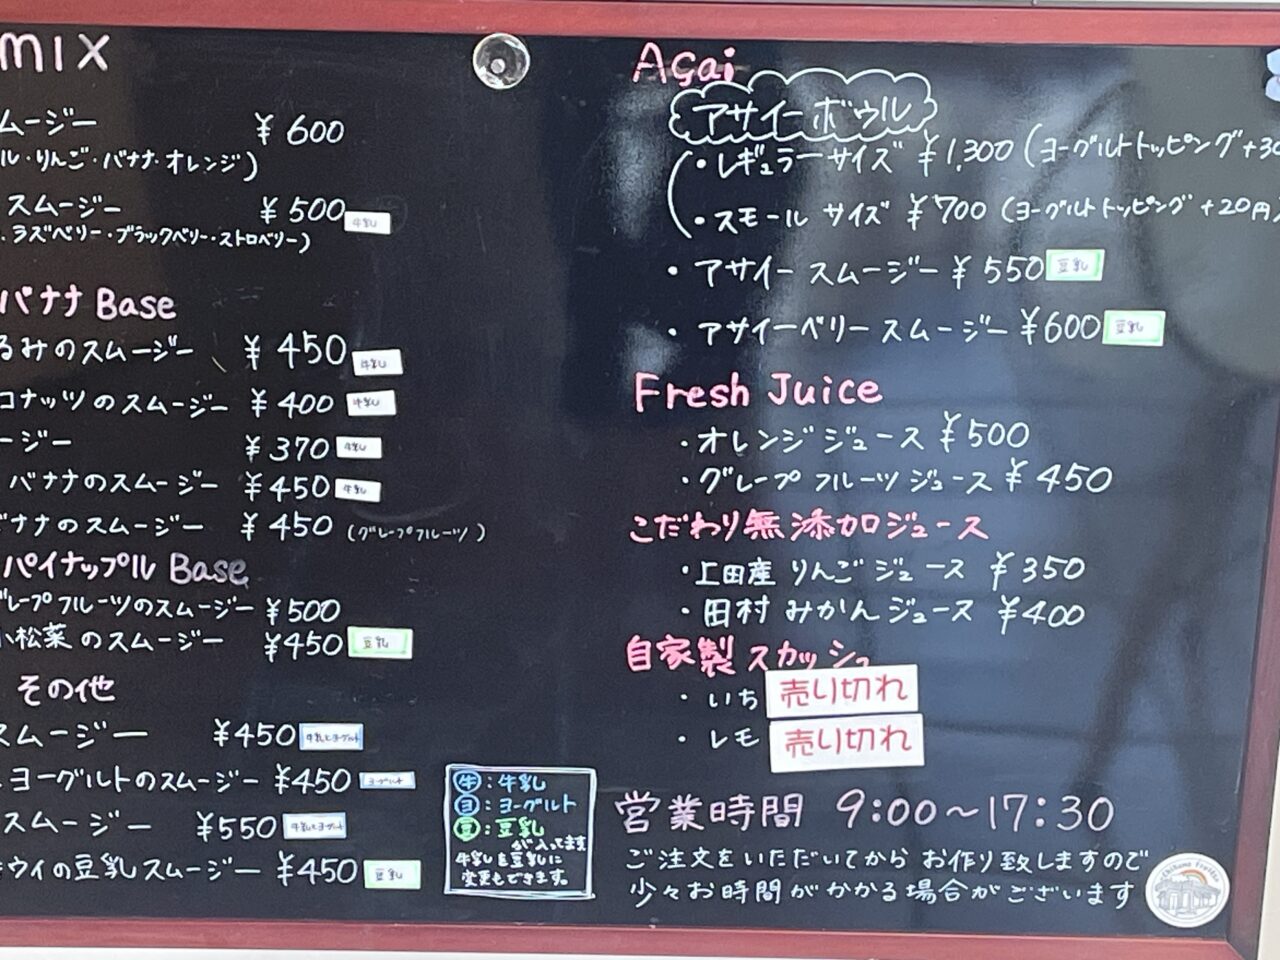 mix
ムージー ¥600
ル・りんご・バナナ・オレンジ)
スムージー ¥500 牛乳
・ラズベリー・ブラックベリー・ストロベリー)
バナナ Base
るみのスムージー ¥450 牛乳
コナッツのスムージー ¥400 牛乳
ージー ¥370 牛乳
バナナのスムージー ¥450 牛乳
バナナのスムージー ¥450 (グレープフルーツ)
パイナップル Base
グレープフルーツのスムージー ¥500
小松菜のスムージー ¥450 豆乳
その他
スムージー ¥450 牛乳とヨーグルト
ヨーグルトのスムージー ¥450 ヨーグルト
スムージー ¥550 牛乳とヨーグルト
キウイの豆乳スムージー ¥450 豆乳
牛:牛乳
ヨ:ヨーグルト
豆:豆乳
が入ってます
牛乳を豆乳に
変更もできます。
Açai
アサイーボウル
・レギュラーサイズ ¥1,300 (ヨーグルトトッピング+30
・スモールサイズ ¥700 (ヨーグルトトッピング+20円)
・アサイースムージー ¥550 豆乳
・アサイーベリースムージー ¥600 豆乳
Fresh Juice
・オレンジジュース ¥500
・グレープフルーツジュース ¥450
こだわり無添加ジュース
・上田産りんごジュース ¥350
・田村みかんジュース ¥400
自家製スカッシュ
・いち 売り切れ
・レモ 売り切れ
営業時間 9:00〜17:30
ご注文をいただいてからお作り致しますので
少々お時間がかかる場合がございます